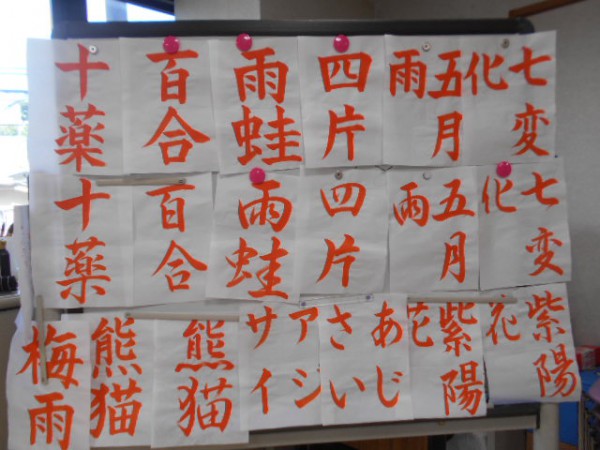 七変化
五月雨
四片
雨蛙
百合
十薬
七変化
五月雨
四片
雨蛙
百合
十薬
紫陽花
紫陽花
あじさい
アジサイ
熊猫
熊猫
梅雨